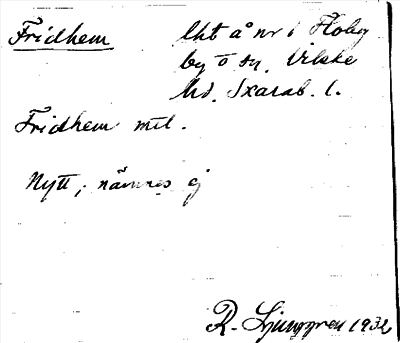 Fridhem lht å nr 1 Floby
by o sn. Vilske
hd. Skarab. l.
Fridhem mtl.
Nytt, nämnes ej
R. Ljunggren 1932